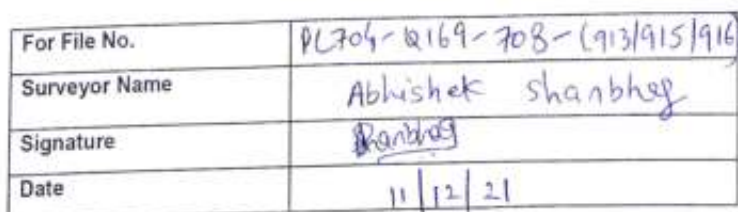 For File No. PL704-Q169-708-(913/915/916)
Surveyor Name Abhishek Shanbhag
Signature Shanbhag
Date 11/12/21